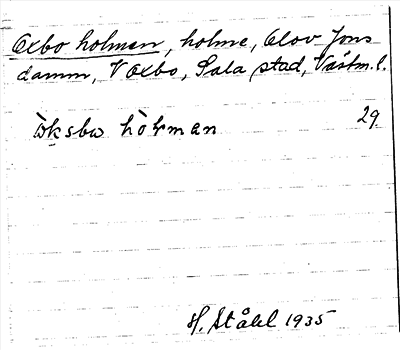 Oxbo holmen, holme, Olov Jons
damm, V Oxbo, Sala stad, Västm. l.
òksbω hòlman 29
H. Ståhl 1935